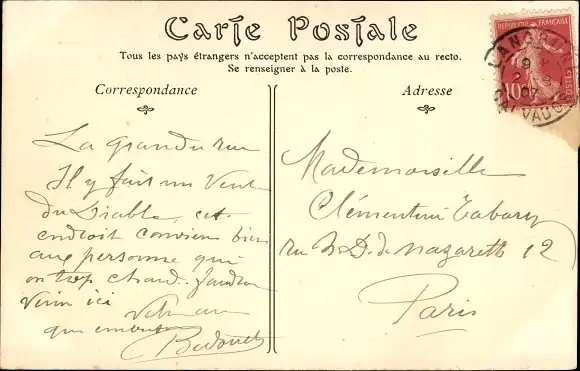 Carte Postale
Tous les pays étrangers n'acceptent pas la correspondance au recto.
Se renseigner à la poste.
Correspondance
Adresse
REPUBLIQUE FRANÇAISE
POSTES
10
CALVADOS
9
07
La grande rue
Il y fait un vent
du Diable, cet
endroit convien bien
aux personne qui
on trop chaud. faudra
venir ici
Mademoiselle
Clémentine Tabary
rue N. D. de Nazareth 12
Paris